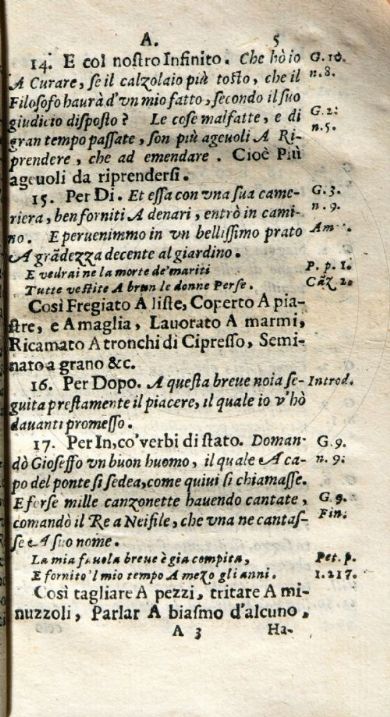 A. 5
14. E col nostro Infinito. Che hò io G. 10.
A Curare, se il calzolaio più tosto, che il n. 8.
Filosofo haurà d'vn mio fatto, secondo il suo
giudicio disposto? Le cose malfatte, e di G. 2:
gran tempo passate, son più ageuoli A Ri- n. 5.
prendere, che ad emendare. Cioè Più
ageuoli da riprendersi.
15. Per Di. Et essa con vna sua came- G. 3.
riera, ben forniti A denari, entrò in cami- n. 9.
no. E peruenimmo in vn bellissimo prato Am.
A grādezza decente al giardino.
E vedrai ne la morte de' mariti P. p. 1.
Tutte vestite A brun le donne Perse. Cāz. 20
Così Fregiato A liste, Coperto A pia-
stre, e A maglia, Lauorato A marmi,
Ricamato A tronchi di Cipresso, Semi-
nato a grano &c.
16. Per Dopo. A questa breue noia se- Introd.
guita prestamente il piacere, il quale io v'hò
dauanti promesso.
17. Per In, co' verbi di stato. Doman- G. 9.
dò Gioseffo vn buon huomo, il quale A ca- n. 9:
po del ponte si sedea, come quiui si chiamasse.
E forse mille canzonette hauendo cantate, G. 9.
comandò il Re a Neifile, che vna ne cantas- Fin:
se A suo nome.
La mia fauola breue è gia compita, Pet. p.
E fornito'l mio tempo A mezo gli anni. 1. 217.
Così tagliare A pezzi, tritare A mi-
nuzzoli, Parlar A biasmo d'alcuno,
A 3 Ha-